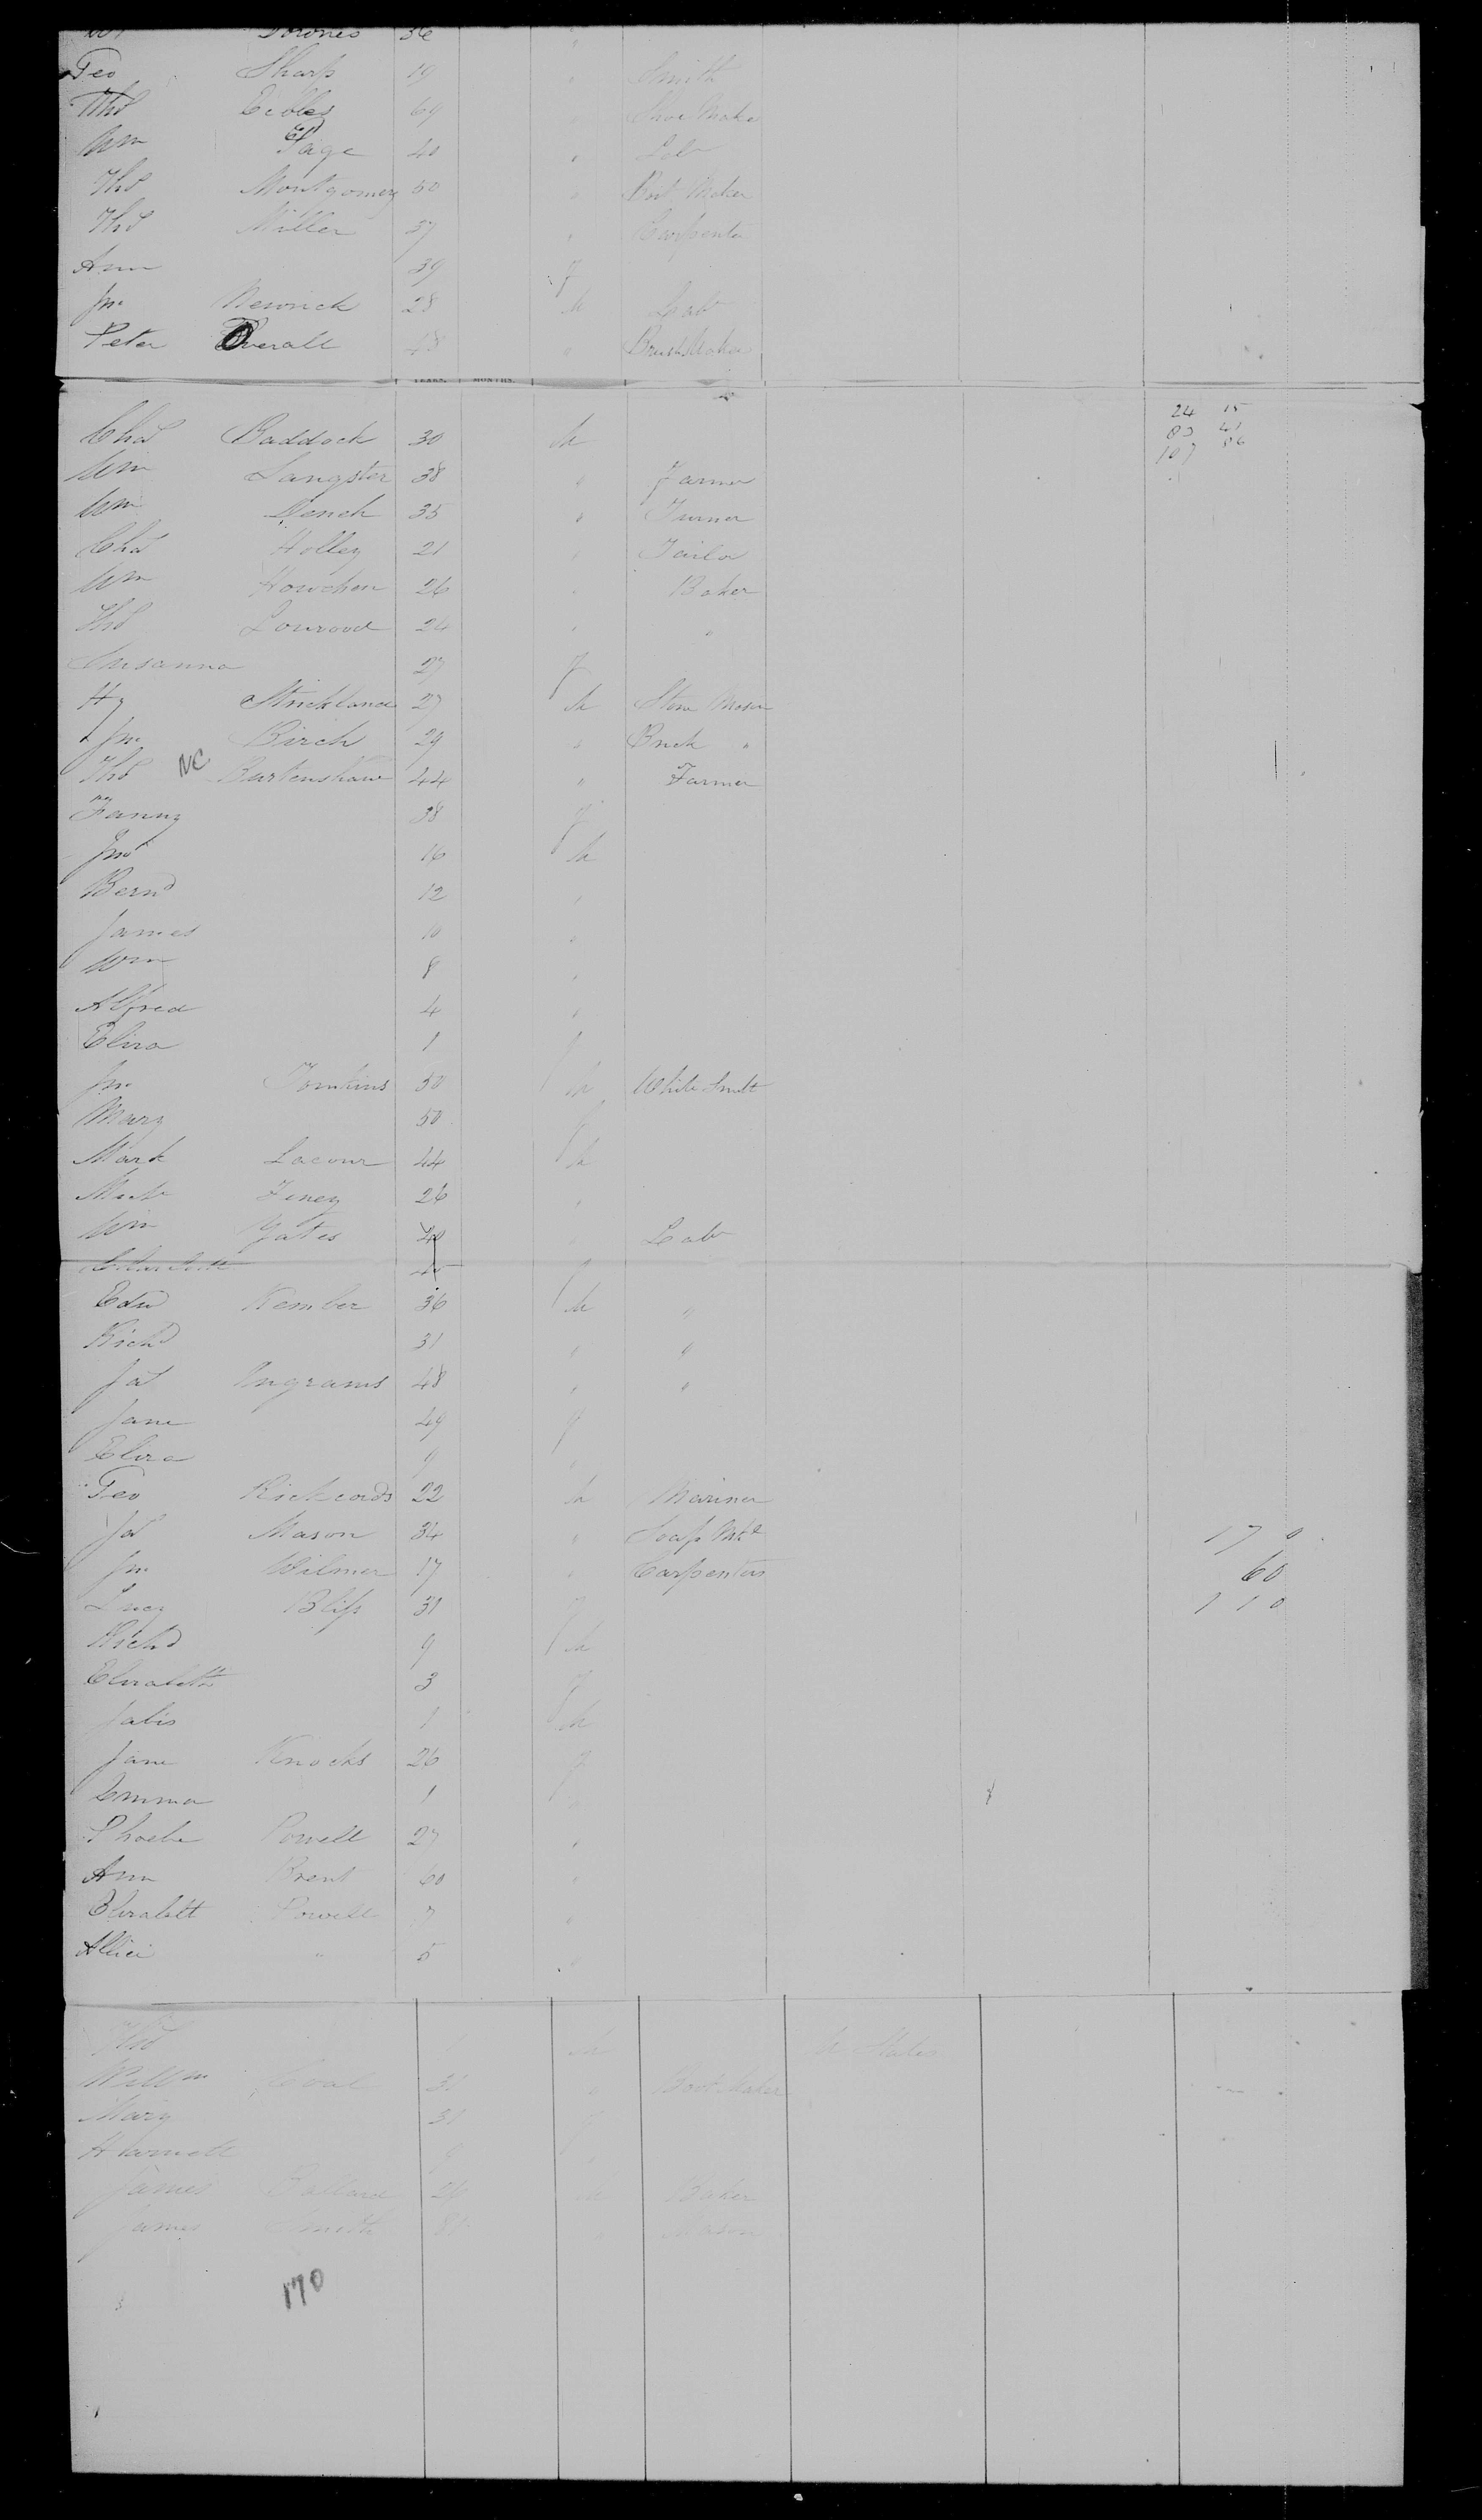 Downes 36 "
Geo Sharp 19 " Smith
Thos Eccles 69 " Shoe Make
Wm Page 40 " Lab
Thos Montgomery 50 " Boot Maker
Thos Miller 37 " Carpente
Ann 39 f
Jno Newick 28 M Lab
Peter Overall 48 " Brush Maker
YEARS. MONTHS.
24 15
83 41
107 56
Chas Baddock 30 M
Wm Langster 38 " Farmer
Wm Dench 35 " Turner
Chas Holley 21 " Tailor
Wm Howchen 26 " Baker
Thos 24 " "
Susanna 27 f
Hy Strickland 27 M Stone Mason
Jno Birch 29 " Brick "
Thos NC Burtenshaw 44 " Farmer
Fanny 38 f
Jno 16 M
Bernd 12 "
James 10 "
Wm 8 "
Alfred 4 "
Eliza 1 f
Jno Tomkins 50 M White Smit
Mary 50 f
Mark Lacour 44 M
Finey 26 "
Wm Yates 40 " Lab
45 f
Edwd Kember 36 M "
Richd 31 " "
Jas Ingrams 48 " "
Jane 49 f
Eliza 9 "
Geo Rickcords 22 M Mariner
Jas Mason 34 " Soap Mkr 170
Jno Wilmer 17 " Carpenters 60
Lucy Bliss 31 f 110
Richd 9 M
Elizabeth 3 f
Jabis 1 M
Jane Knocks 26 f
Emma 1 "
Phoebe Powell 27 "
Ann Brent 60 "
Elizabett Powell 7 "
Allice " 5 "
Thos M U States
Willm Coal 30 " Boot Maker
Mary 30 f
Harriett
James Bollard 26 M Baker
James Smith " Mason
170